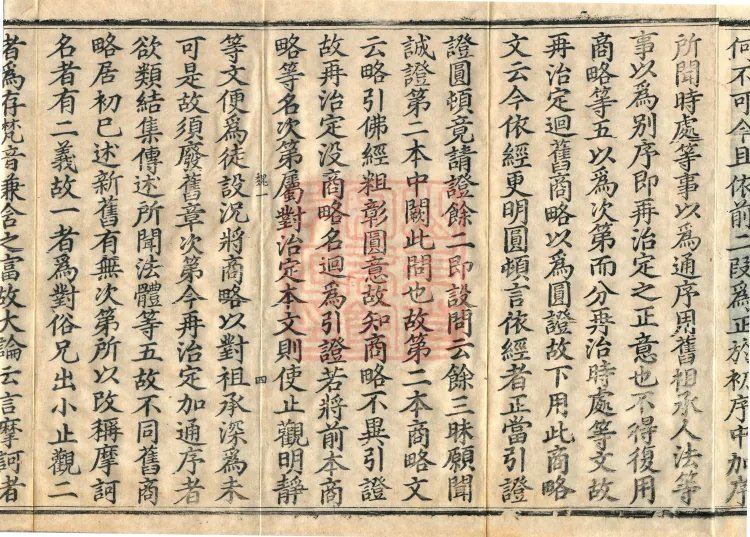 何不可今且依前二段爲正於初序中加序
所聞時處等事以爲通序用舊祖承人法等
事以爲別序即再治定之正意也不得復用
商略等五以爲次第而分再治時處等文故
再治定迴舊商略以爲圓證故下用此商略
文云今依經更明圓頓言依經者正當引證
證圓頓竟請證餘二即設問云餘三昧願聞
誠證第二本中闕此問也故第二本商略文
云略引佛經粗彰圓意故知商略不異引證
故再治定没商略名迴爲引證若將前本商
略等名次第屬對治定本文則使止觀明靜
四
等文便爲徒設況將商略以對祖承深爲未
可是故須廢舊章次第今再治定加通序者
欲類結集傳述所聞法體等五故不同舊商
略居初已述新舊有無次第所以改稱摩訶
名者有二義故一者爲對俗兄出小止觀二
者爲存梵音兼含之富故大論云言摩訶者